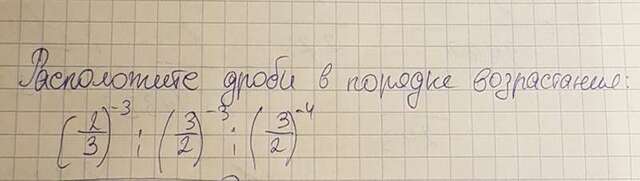 Расположите дроби в порядке возрастания:
(2/3)^-3 ; (3/2)^-3 ; (3/2)^-4